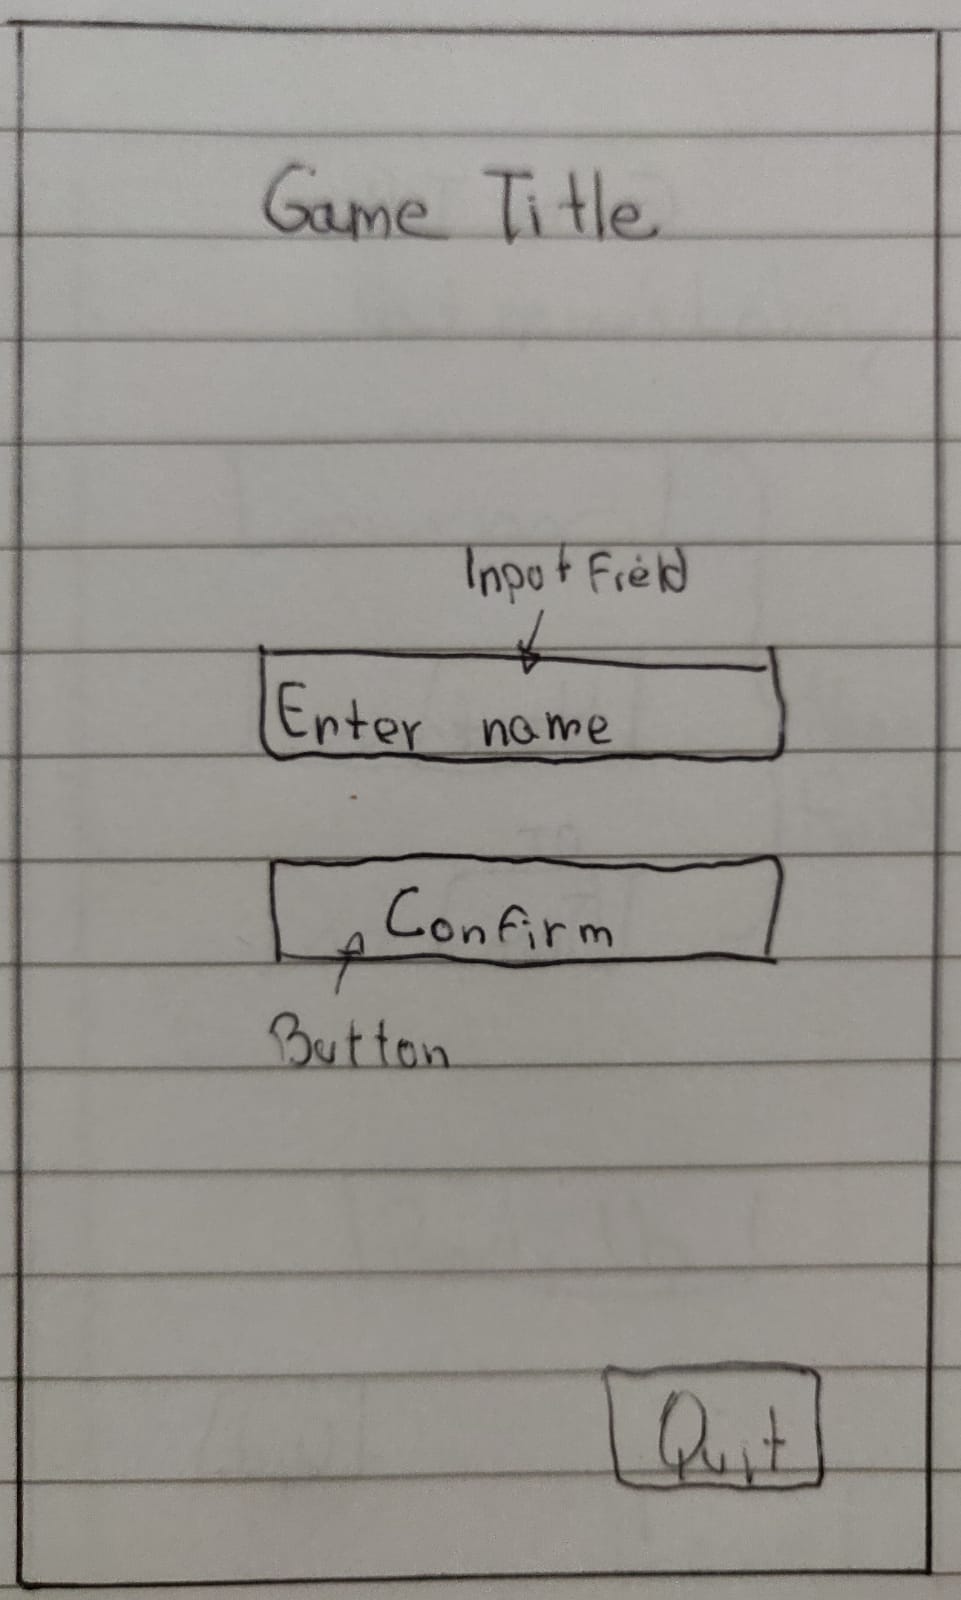 Game Title
Input Field
Enter name
Confirm
Button
Quit